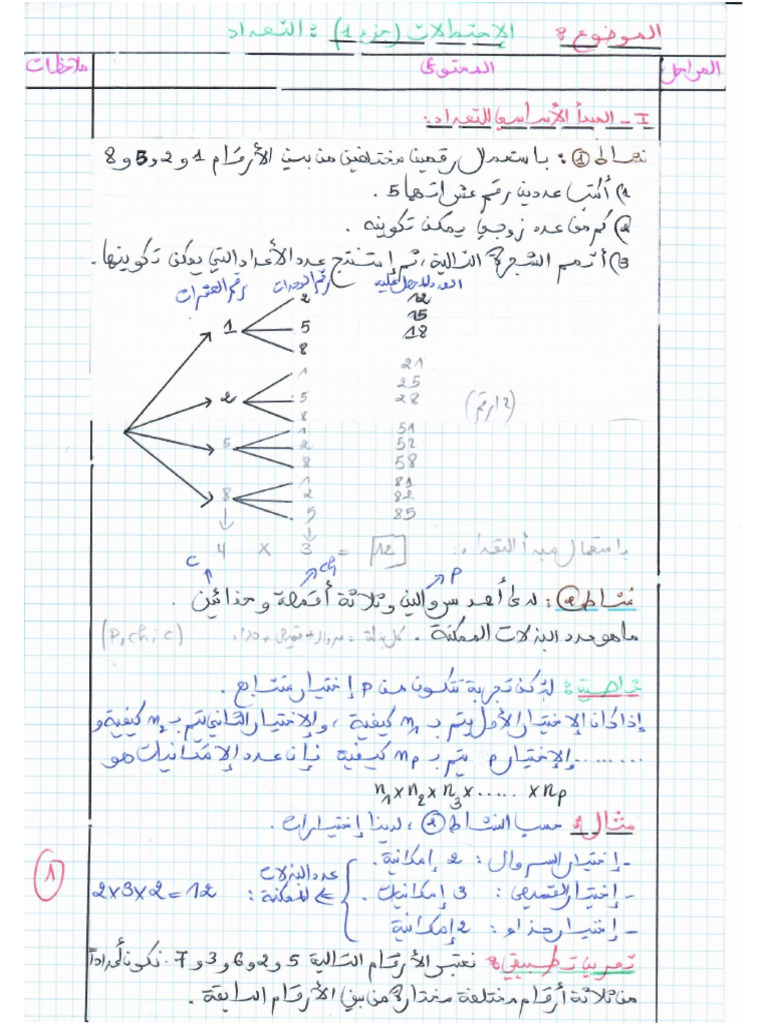 الموضوع 8 الإحتمالات (جزء 1) : التعداد
المراحل المحتوى ملاحظات
I - المبدأ الأساسي للتعداد:
نشاط ① : باستعمال رقمين مختلفين من بين الأرقام 1 و 2 و 5 و 8
1) أكتب عددين رقم عشراتهما 5 .
2) كم من عدد زوجي يمكن تكوينه .
3) أتمم الشجرة التالية ، ثم إستنتج عدد الأعداد التي يمكن تكوينها .
رقم العشرات رقم الوحدات العدد المحصل عليه
1 2 12
5 15
8 18
2 1 21
5 25
8 28
(12 رقم)
5 1 51
2 52
8 58
8 1 81
2 82
5 85
باستعمال مبدأ التعداد :
4 x 3 = 12
c ch p
نشاط ② : لدى أحمد سروالين وثلاثة أقمصة وحذائين .
ما هو عدد البذلات الممكنة . كل بذلة = سروال + قميص + حذاء (P, ch, c)
خاصية : لتكن تجربة تتكون من p إختيار متتابع .
إذا كان الإختيار الأول يتم ب n₁ كيفية ، والإختيار الثاني يتم ب n₂ كيفية و
........ والإختيار p يتم ب np كيفية فإن عدد الإمكانيات هو
n₁ x n₂ x n₃ x ..... x np
مثال 1 حسب النشاط ② ، لدينا إختيارات .
- إختيار السروال : 2 إمكانية .
- إختيار القميص : 3 إمكانيات .
- إختيار حذاء : 2 إمكانية
عدد البذلات
الممكنة :
2x3x2=12
1
تمرين تطبيقي 8 نعتبر الأرقام التالية 5 و 2 و 6 و 3 و 7 . نكون أعدادا
من ثلاثة أرقام مختلفة مختارة من بين الأرقام السابقة .